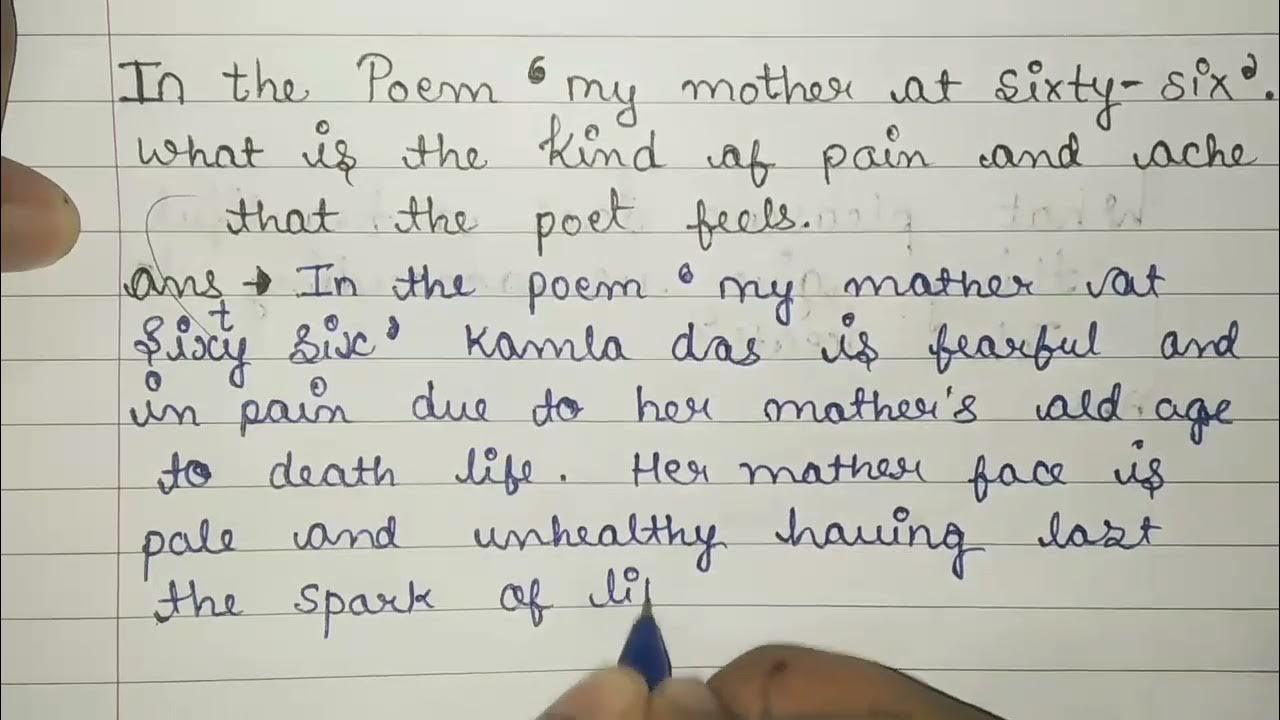 In the Poem ‘my mother at sixty-six’.
what is the kind of pain and ache
that the poet feels.
ans → In the poem ‘my mather at
Sixty Six’ Kamla das is fearful and
in pain due to her mather's ald age
to death life. Her mather face is
pale and unhealthy having last
the spark of li